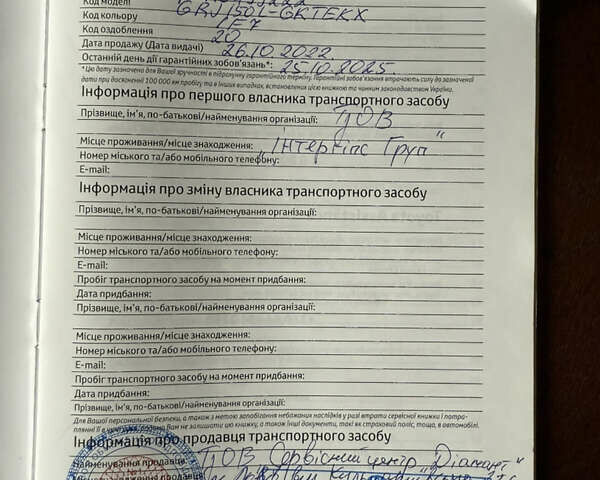 Код моделі GRJ150L-GKTEKX
Код кольору 1F7
Код оздоблення 20
Дата продажу (Дата видачі) 26.10.2022
Останній день дії гарантійних зобов'язань*: 25.10.2025
*Цю дату зазначено для Вашої зручності в підрахунку гарантійного терміну. Гарантійні зобов'язання втрачають силу до зазначеної
дати при досягненні 100 000 км пробігу та в інших випадках, встановлених цією книжкою та чинним законодавством України.
Інформація про першого власника транспортного засобу
Прізвище, ім'я, по-батькові/найменування організації: ТОВ
Місце проживання/місце знаходження: "Інтерпіпс Груп"
Номер міського та/або мобільного телефону:
E-mail:
Інформація про зміну власника транспортного засобу
Прізвище, ім'я, по-батькові/найменування організації:
Місце проживання/місце знаходження:
Номер міського та/або мобільного телефону:
E-mail:
Пробіг транспортного засобу на момент придбання:
Дата придбання:
Прізвище, ім'я, по-батькові/найменування організації:
Місце проживання/місце знаходження:
Номер міського та/або мобільного телефону:
E-mail:
Пробіг транспортного засобу на момент придбання:
Дата придбання:
Прізвище, ім'я, по-батькові/найменування організації:
Для Вашої персональної безпеки, а також з метою запобігання небажаних наслідків у разі втрати сервісної книжки і потра-
плянні її в Вам не залишати цю книжку, а також інші документи, такі як страховий поліс, тощо, в автомобілі.
Інформація про продавця транспортного засобу
Найменування продавця: ТОВ Сервісний центр "Діамант"